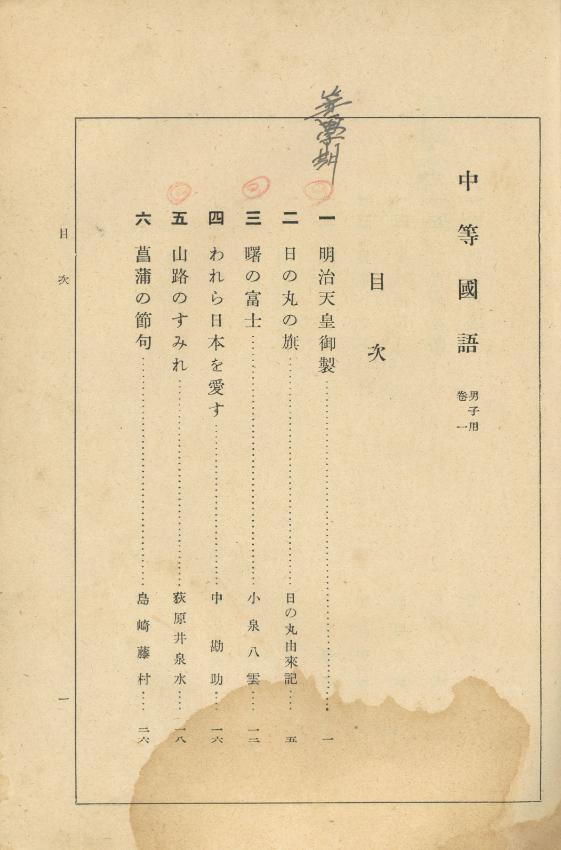 中等國語 男子用
卷一
目次
一 明治天皇御製……一
二 日の丸の旗……日の丸由來記……五
三 曙の富士……小泉八雲……一二
四 われら日本を愛す……中勘助……一六
五 山路のすみれ……荻原井泉水……一八
六 菖蒲の節句……島崎藤村……二六
目次
一